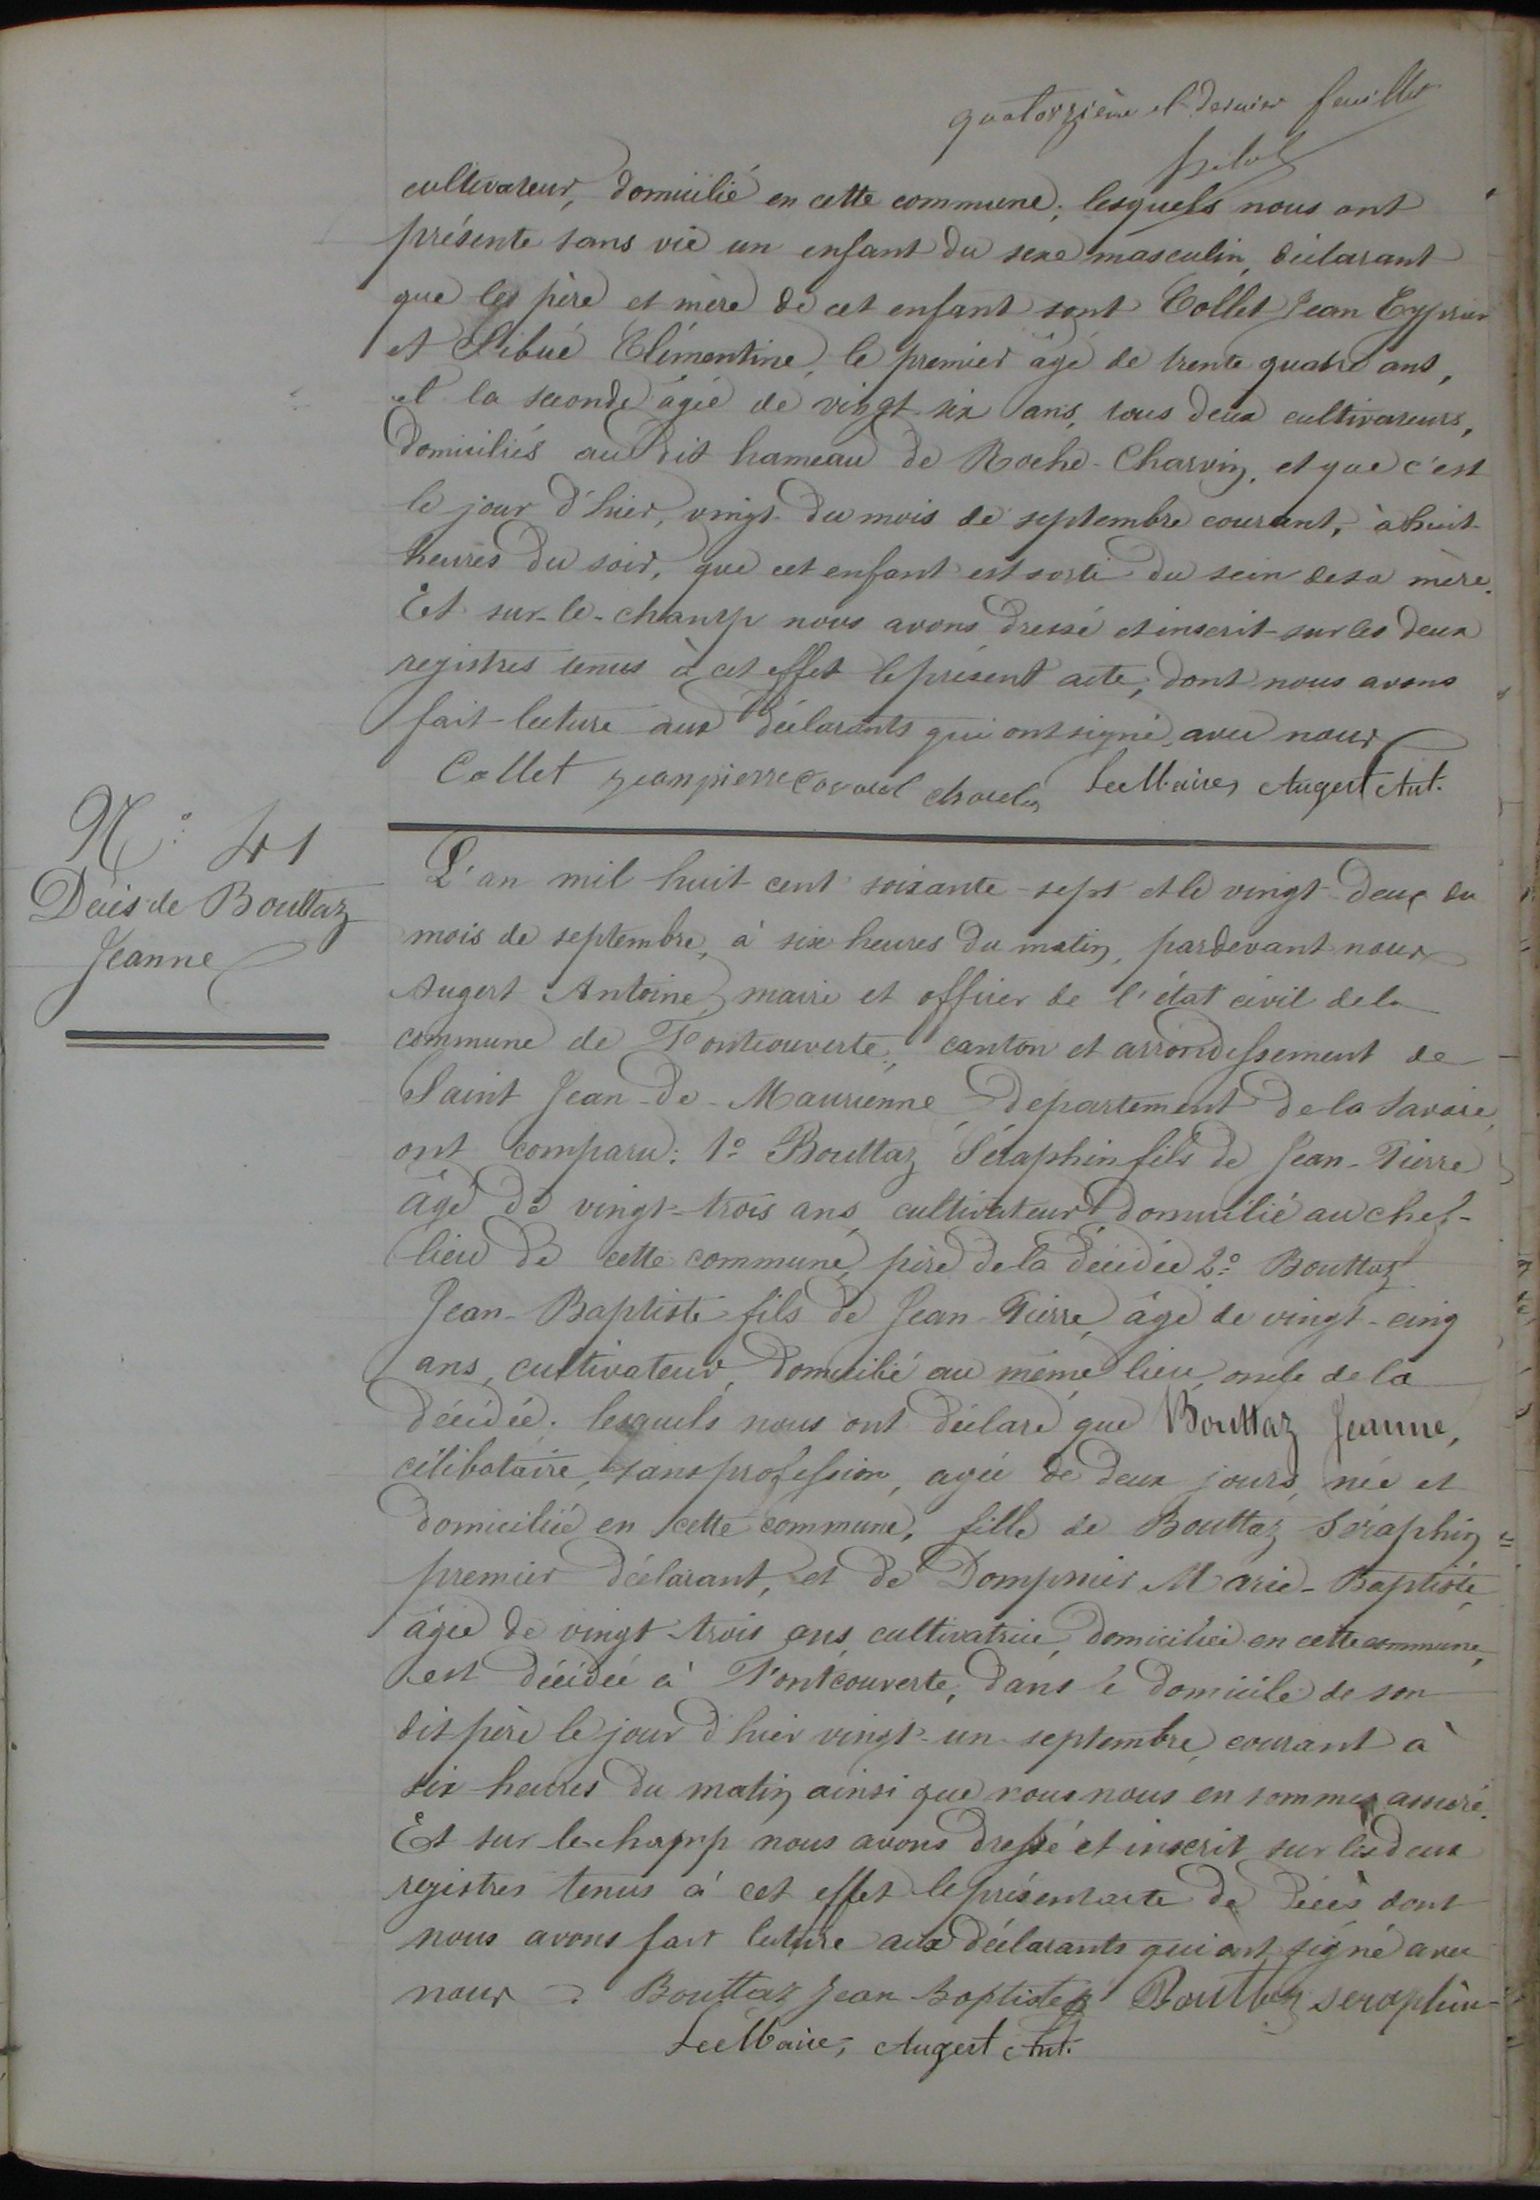 quatorzième et dernier feuillet
cultivateur, domicilié en cette commune; lesquels nous ont
présente sans vie un enfant du sexe masculin, déclarant
que les père et mère de cet enfant sont Collet Jean Cyprien
et Sibué Clémentine, le premier âgé de trente quatre ans,
et la seconde âgée de vingt six ans, tous deux cultivateurs,
domiciliés au dit hameau de Roche-Charvin, et que c'est
le jour d'hier, vingt du mois de septembre courant, à huit
heures du soir, que cet enfant est sorti du sein de sa mère.
Et sur-le-champ nous avons dressé et inscrit sur les deux
registres tenus à cet effet le présent acte, dont nous avons
fait lecture aux déclarants qui ont signé avec nous
Collet Jean pierre Le Maire, Augert Ant.
N° 41
Décès de Bouttaz
Jeanne
L'an mil huit cent soixante-sept et le vingt-deux du
mois de septembre, à six heures du matin, pardevant nous
Augert Antoine, maire et officier de l'état civil de la
commune de Fontcouverte, canton et arrondissement de
Saint Jean-de-Maurienne, département de la Savoie,
ont comparu: 1° Bouttaz Séraphin fils de Jean-Pierre
âgé de vingt-trois ans, cultivateur, domicilié au chef-
lieu de cette commune, père de la décédée 2° Bouttaz
Jean-Baptiste fils de Jean-Pierre, âgé de vingt-cinq
ans, cultivateur, domicilié au même lieu, oncle de la
décédée; lesquels nous ont déclaré que Bouttaz Jeanne,
célibataire, sans profession, agée de deux jours, née et
domiciliée en cette commune, fille de Bouttaz Séraphin =
premier déclarant, et de Dompnier Marie-Baptiste,
âgée de vingt-trois ans, cultivatrice, domiciliée en cette commune,
est décédée à Fontcouverte, dans le domicile de son
dit père le jour d'hier vingt-un septembre, courant à
six heures du matin ainsi que nous nous en sommes assuré.
Et sur-le-champ nous avons dressé et inscrit sur les deux
registres tenus à cet effet le présent acte de décès dont
nous avons fait lecture aux déclarants qui ont signé avec
nous Bouttaz Jean Baptiste Bouttaz seraphin
Le Maire, Augert Ant.